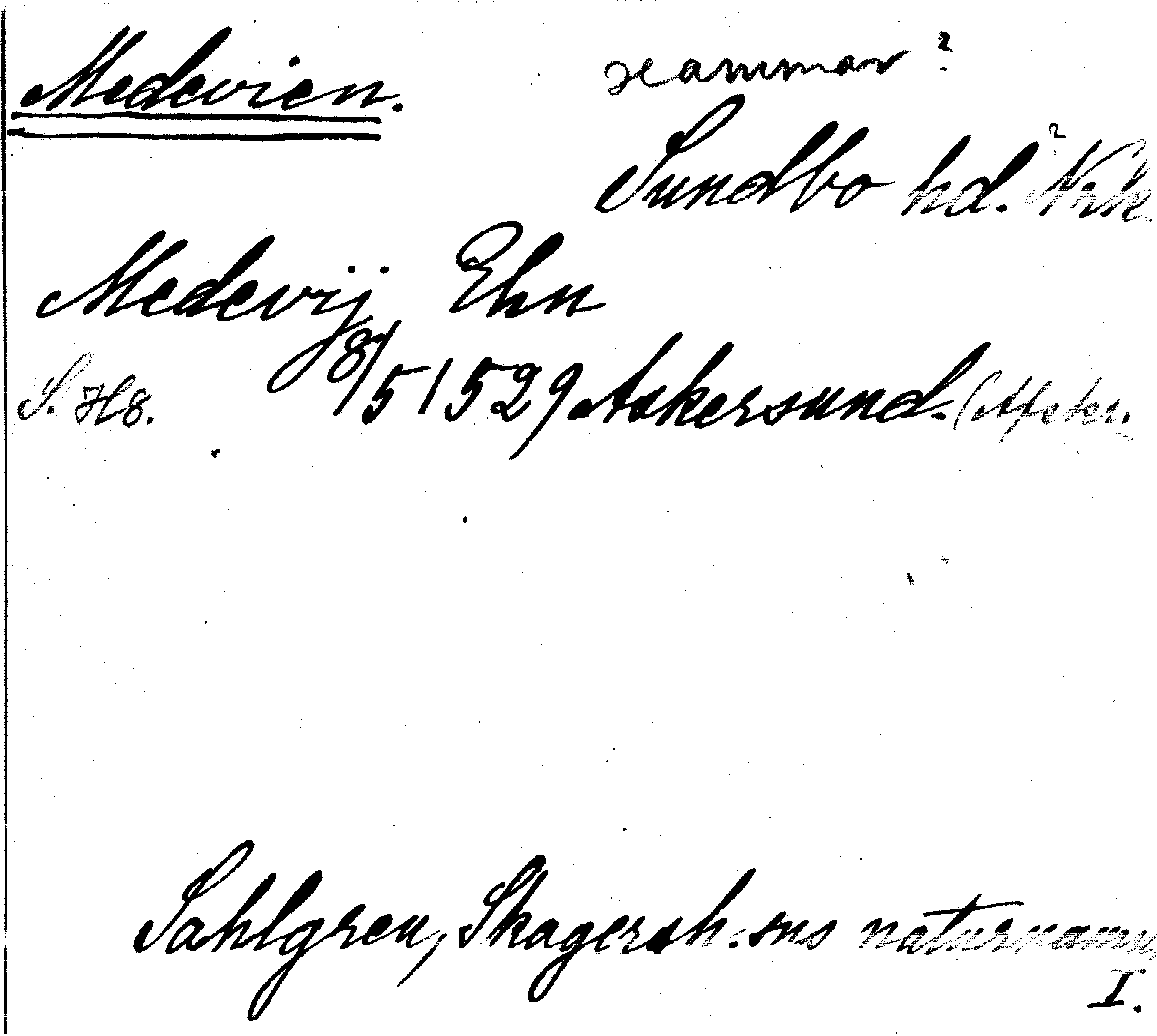 Medevien.
Hammar?
Sundbo hd.? Nrk.
Medevij Ehn
S. H8. 8/5 1529 Askersund. (Afskr.
Sahlgren, Skagersh. sns naturnamn,
I.